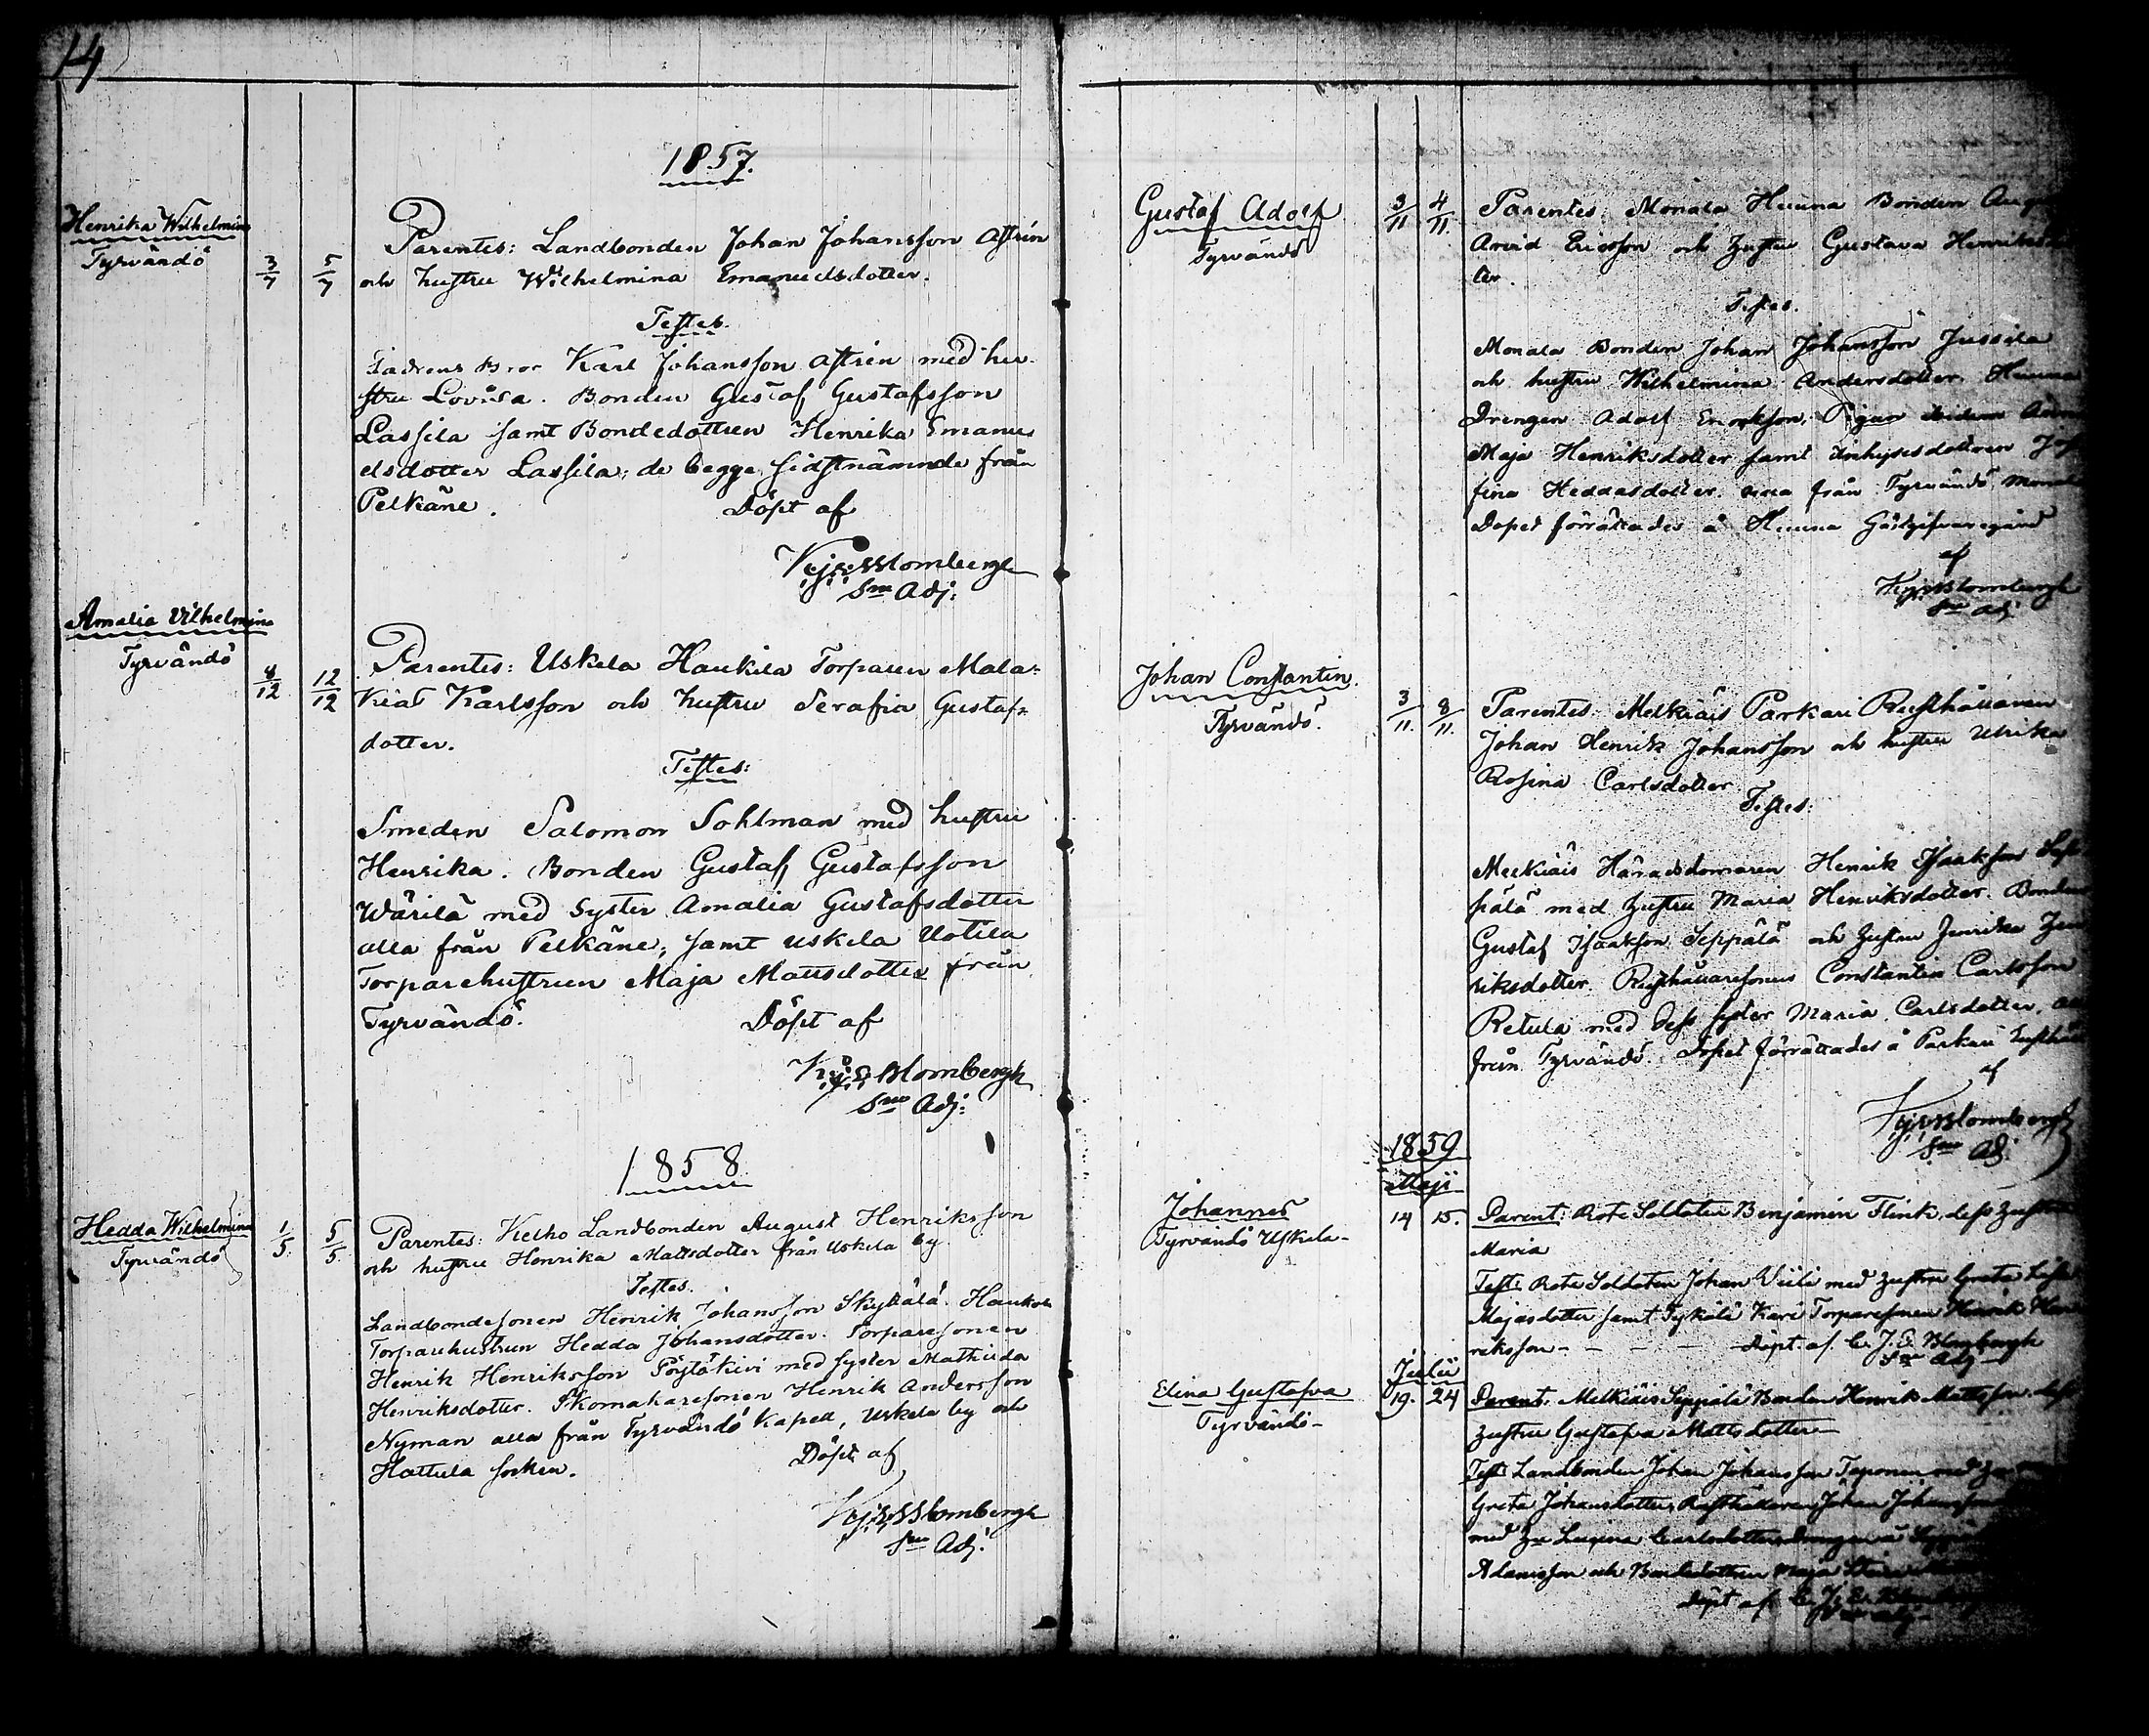 14
1857.
Henrika Wilhelmina
Tyrvändö
3/7 5/7
Parentes: Landbonden Johan Johansson Astrén
och hustru Wilhelmina Emanuelsdotter.
Testes.
Fadrens Bror Karl Johansson Astrén med hu-
stru Lovisa. Bonden Gustaf Gustafsson
Lassila samt Bondedottren Henrika Emanu
elsdotter Lassila; de begge sidstnämnde från
Pelkäne.
Döpt af
Blombergh
Sm Adj:
Amalia Vilhelmina
Tyrvändö
8/12 12/12
Parentes: Uskela Haukila Torparen Mala-
kias Karlsson och hustru Serafia Gustaf-
dotter.
Testes:
Smeden Salomon Sohlman med hustru
Henrika. Bonden Gustaf Gustafsson
Wärilä med Syster Amalia Gustafsdotter
alla från Pelkäne; samt Uskela Uotila
Torparehustrun Maja Mattsdotter från
Tyrvändö.
Döpt af
Blombergh
Sm Adj:
1858
Hedda Wilhelmina
Tyrvändö
1/5. 5/5.
Parentes: Ketho Landbonden August Henriksson
och hustru Henrika Mattsdotter från Uskela by.
Testes.
Landbondesonen Henrik Johansson Skyttälä.
Torparehustrun Hedda Johansdotter. Torparesonen
Henrik Henriksson Pöytäkivi med syster Mathilda
Henriksdotter. Skomakaresonen Henrik Andersson
Nyman alla från Tyrvändö Kapell, Uskela by och
Hattula socken.
Döpt af
Blombergh
Sm Adj.
Gustaf Adolf
Tyrvändö
3/11 4/11.
Parentes: Monala Bonden
Arvid Ericsson och hustru Gustava
ter.
Testes.
Monala Bonden Johan Johansson Jussila
och hustru Wilhelmina Andersdotter.
Drengen Adolf Pigan
Maja Henriksdotter samt Inhysesdottren
fina Heddasdotter från Tyrvändö
Dopet förrättades å Gästgifvaregård
af
Blombergh
Sm Adj
Johan Constantin.
Tyrvändö.
3/11. 8/11.
Parentes: Melkiäis Parkari Rusthållaren
Johan Henrik Johansson och hustru Ulrika
Rosina Carlsdotter
Testes:
Melkiäis Häradsdomaren Henrik Isaaksson
pälä med hustru Maria Henriksdotter. Bonden
Gustaf Isaaksson Seppälä och hustru Henrika Hen
riksdotter. Rusthållaresonen Constantin Carlsson
Retula med dess syster Maria Carlsdotter,
från Tyrvändö. Dopet förrättades å Parkari
af
Blombergh
Sm Adj
1859
Maji
Johannes
Tyrvändö Uskela-
14 15.
Parent: Rote Soldaten Benjamin Flink, dess hustru
Maria
Test: Rote Soldaten Johan Wiili med hustru Greta
Majasdotter samt Kari Torparesonen Henrik Hen
riksson- - - - Döpt af C. J. E. Blombergh
Sm Adj
Julii
Elina Gustafva
Tyrvändö-
19. 24
Parent: Melkiäis Seppälä Bonden Henrik Mattsson dess
hustru Gustafva Mattsdotter
Test: Landbonden Johan Johansson Taponen med
Greta Johansdotter, Rusthållaren Johan Johansson
med Carlsdotter, Drengen
Adamsson och Bondedottren Maja
döpt af C. J. E.